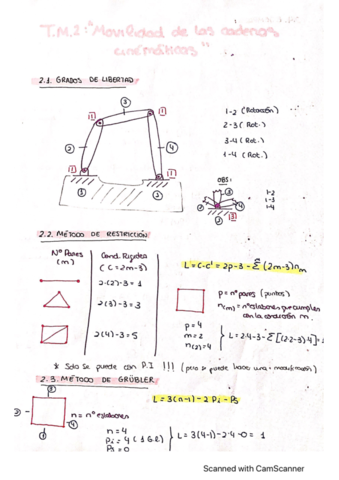 T.M.2: "Movilidad de las cadenas
cinemáticas"
2.1. GRADOS DE LIBERTAD
3
1
1
2
4
1
1
3
3
1-2 (Rotación)
2-3 (Rot.)
3-4 (Rot.)
1-4 (Rot.)
OBS:
1-2
1-3
1-4
2.2. MÉTODO DE RESTRICCIÓN
Nº Pares
(m)
Cond. Rigidez
(C=2m-3)
2·(2)-3 = 1
2(3)-3 = 3
2(4)-3 = 5
L = C-C' = 2p-3-Σ(2m-3)nm
p = nº pares (puntos)
n(m) = nº eslabones que cumplen
con la condición m.
p = 4
m = 2
n(2) = 4
L = 2·4-3-Σ[(2·2-3)4] = 1
* Solo se puede con P.I !!! (pero se puede hacer una modificación)
2.3. MÉTODO DE GRÜBLER
L = 3(n-1)-2Pi-Ps
n = nº eslabones
n = 4
Pi = 4 (1 G.L)
Ps = 0
L = 3(4-1)-2·4-0 = 1
Scanned with CamScanner